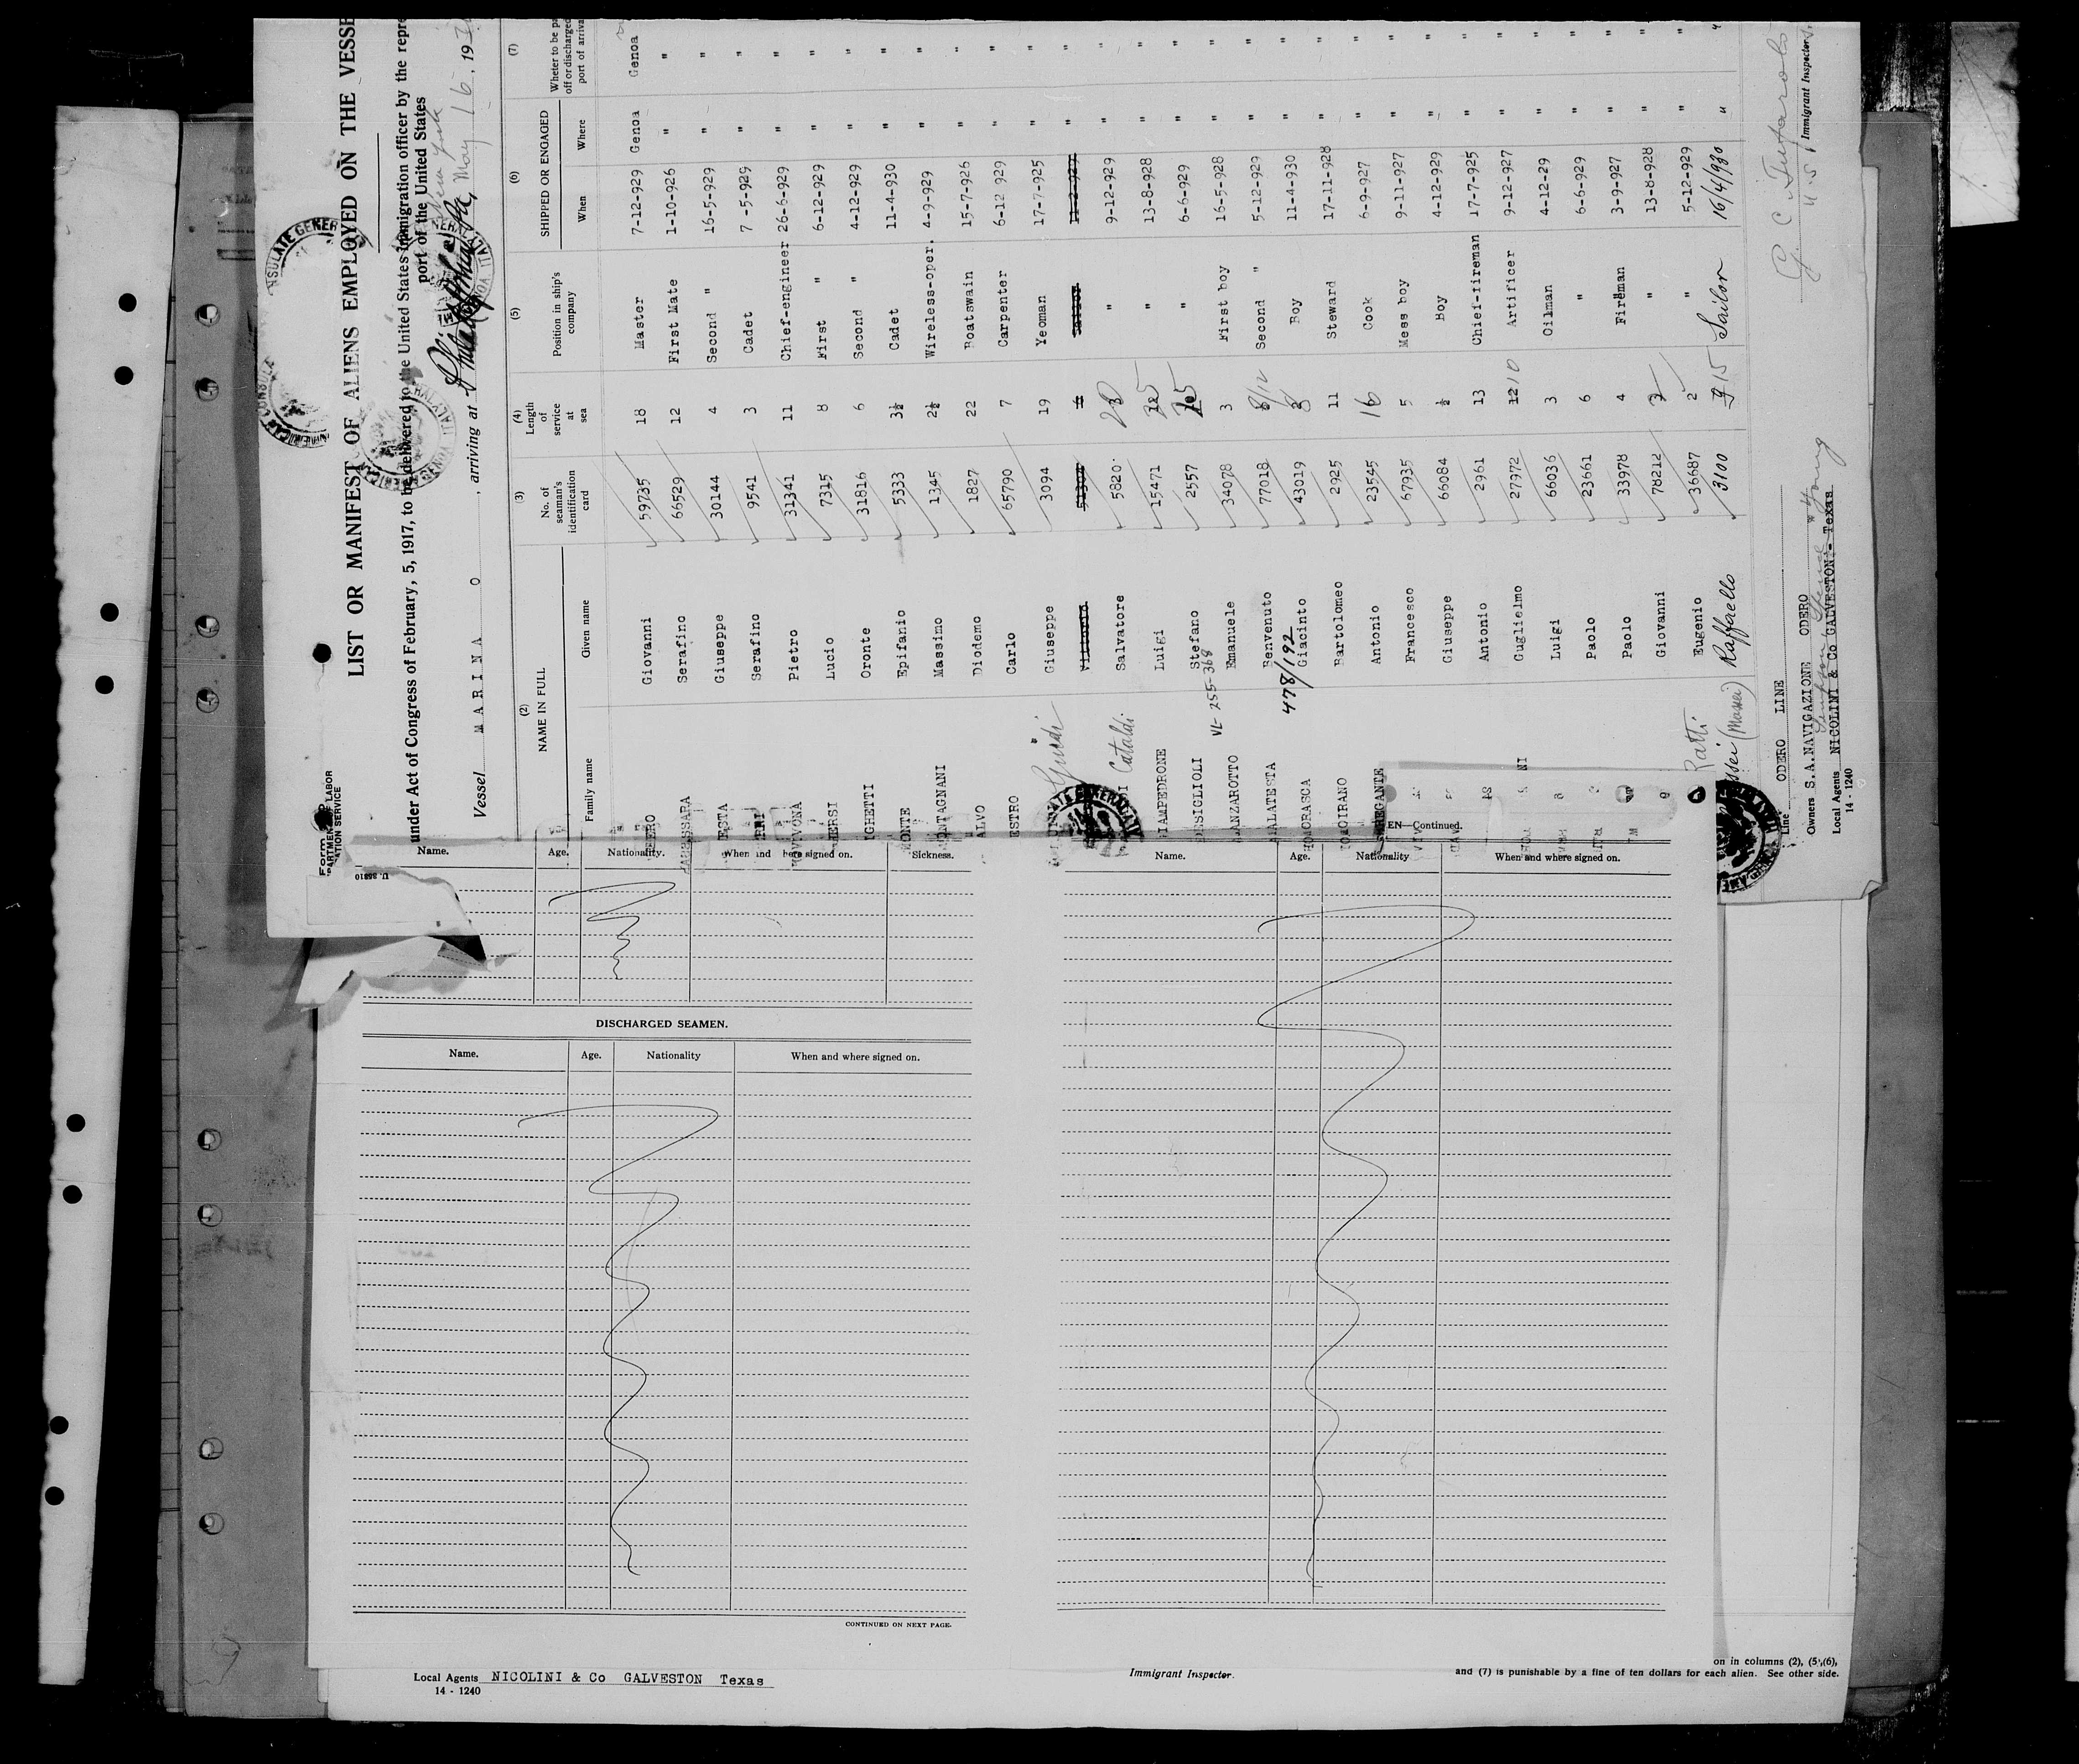 LIST OR MANIFEST OF ALIENS EMPLOYED ON THE VESSE
under Act of Congress of February, 5, 1917, to be delivered to the United States immigration officer by the repre
port of the United States
Vessel MARINA O , arriving at Philadelphia, May 16, 193
(2) (3) (4) (5) (6) (7)
NAME IN FULL No. of seaman's identification card Length of service at sea Position in ship's company SHIPPED OR ENGAGED Wheter to be pa off or discharged port of arriva
Family name Given name When Where
ERO Giovanni 59735 18 Master 7-12-929 Genoa Genoa
ESSARA Serafino 66529 12 First Mate 1-10-926 " "
ESTA Giuseppe 30144 4 Second " 16-5-929 " "
Serafino 9541 3 Cadet 7-5-929 " "
Pietro 31341 11 Chief-engineer 26-6-929 " "
ERSI Lucio 7315 8 First " 6-12-929 " "
IGHETTI Oronte 31816 6 Second " 4-12-929 " "
ONTE Epifanio 5333 3½ Cadet 11-4-930 " "
ONTAGNANI Massimo 1345 2½ Wireless-oper. 4-9-929 " "
ALVO Diodemo 1827 22 Boatswain 15-7-926 " "
ESTRO Carlo 65790 7 Carpenter 6-12 929 " "
Guidi Giuseppe 3094 19 Yeoman 17-7-925 " "
Vittorio 11-2-927 "
Cataldi Salvatore 5820 " 9-12-929 " "
IAMPEDRONE Luigi 15471 " 13-8-928 " "
ESIGLIOLI Stefano 2557 " 6-6-929 " "
VL-255-368
ANZAROTTO Emanuele 34078 3 First boy 16-5-928 " "
ALATESTA Benvenuto 77018 Second " 5-12-929 " "
478/192
ORASCA Giacinto 43019 Boy 11-4-930 " "
OIRANO Bartolomeo 2925 11 Steward 17-11-928 " "
REGANTE Antonio 23545 16 Cook 6-9-927 " "
Francesco 67935 5 Mess boy 9-11-927 " "
Giuseppe 66084 ½ Boy 4-12-929 " "
Antonio 2961 13 Chief-fireman 17-7-925 " "
Guglielmo 27972 12 10 Artificer 9-12-927 " "
NI Luigi 66036 3 Oilman 4-12-29 " "
Paolo 23661 6 " 6-6-929 " "
Paolo 33978 4 Fireman 3-9-927 " "
Giovanni 78212 " 13-8-928 " "
Patti Eugenio 36687 2 " 5-12-929 " "
ssei (Massei) Raffaello 3100 15 Sailor 16/4/930 " "
Line ODERO LINE
Owners S.A.NAVIGAZIONE ODERO
Local Agents NICOLINI & Co GALVESTON- Texas
14 - 1240
Immigrant Inspector
U. 85810
Name. Age. Nationality. When and here signed on. Sickness.
DISCHARGED SEAMEN.
Name. Age. Nationality When and where signed on.
CONTINUED ON NEXT PAGE.
EN—Continued.
Name. Age. Nationality When and where signed on.
Local Agents NICOLINI & Co GALVESTON Texas
14 - 1240
Immigrant Inspector.
on in columns (2), (5),(6),
and (7) is punishable by a fine of ten dollars for each alien. See other side.